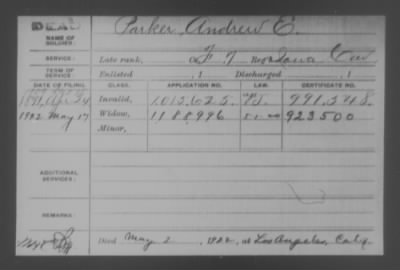 DEAD
NAME OF SOLDIER: Parker, Andrew E.
SERVICE: Late rank, Co F, 7 Reg't Iowa Cav
TERM OF SERVICE: Enlisted , 1 Discharged , 1
DATE OF FILING. CLASS. APPLICATION NO. LAW. CERTIFICATE NO.
1891, Apr 24 Invalid, 1,015,625. 991,548.
1902 May 17 Widow, 1188,996 923500
Minor,
ADDITIONAL SERVICES:
REMARKS:
Died May 2, 1902, at Los Angeles, Caly.